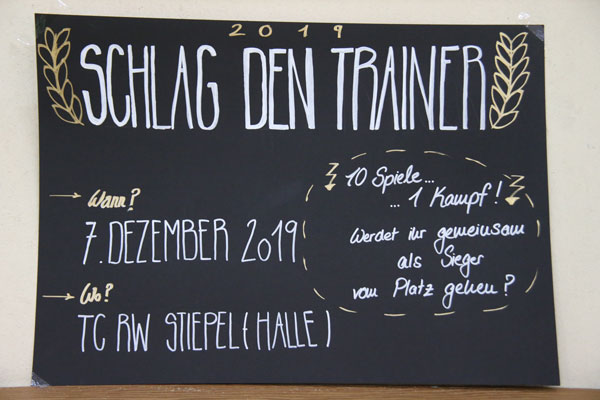 2019
SCHLAG DEN TRAINER
Wann?
7. DEZEMBER 2019
Wo?
TC RW STIEPEL (HALLE)
10 Spiele...
... 1 Kampf!
Werdet ihr gemeinsam
als Sieger
vom Platz gehen?